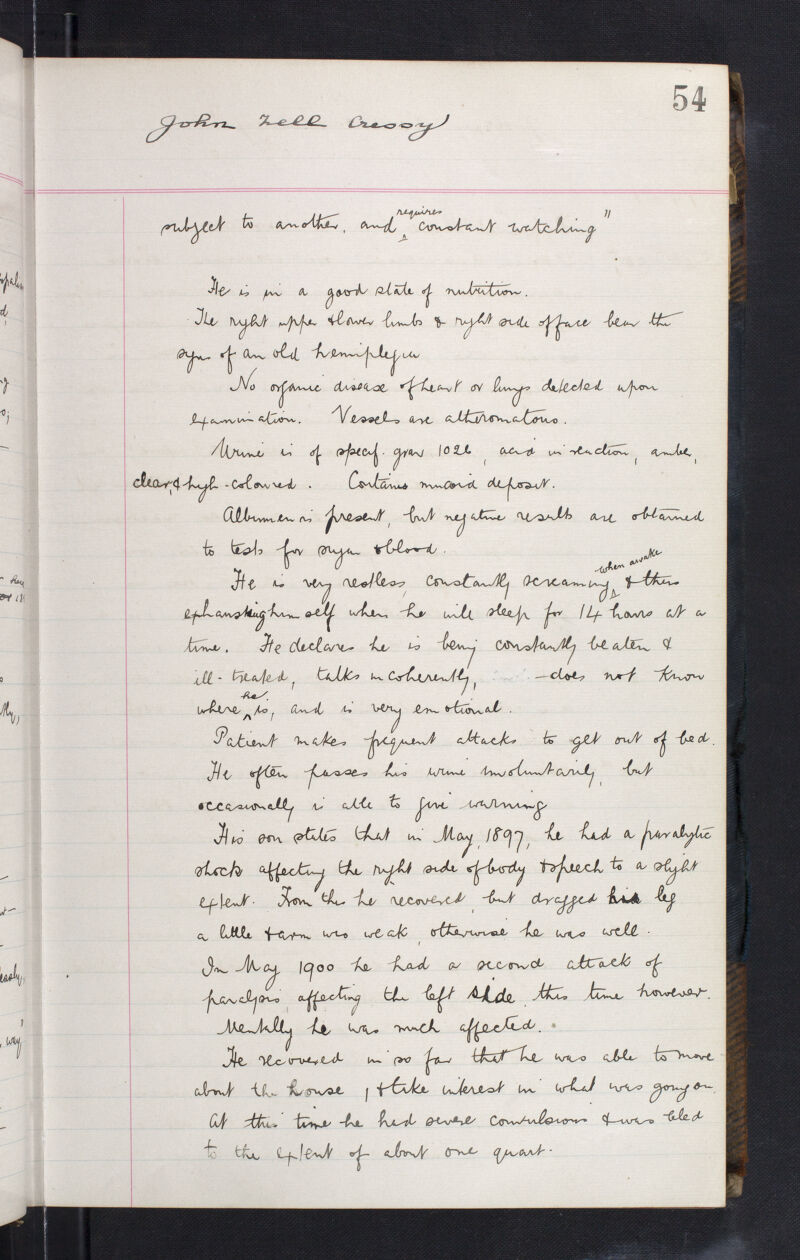 54
John Zell Cressy
subject to another, and requires constant watching"
He is in a good state of nutrition.
The right upper & lower limbs & right side of face bear the
signs of an old hemiplegia
No organic disease of heart or lungs detected upon
examination. Vessels are atheromatous.
Urine is of specif. grav 1026, acid in reaction, amber,
clear, & high-coloured. Contains mucoid deposit.
Albumen is present, but negative results are obtained
to tests for sugar & blood.
He is very restless, constantly screaming when awake & thus
exhausting himself when he will sleep for 14 hours at a
time. He declares he is being constantly beaten &
ill-treated, talks incoherently, - does not know
where he is, and is very emotional.
Patient makes frequent attacks to get out of bed.
He often passes his urine involuntarily, but
occasionally is able to give warning
His son states that in May, 1897, he had a paralytic
shock affecting the right side of body & speech to a slight
extent. From this he recovered but dragged his leg
a little & arm was weak, otherwise he was well.
In May 1900 he had a second attack of
paralysis affecting the left side this time however.
Mentally he was much affected.
He recovered in so far that he was able to move
about the house, & take interest in what was going on.
At this time he had severe convulsions & was bled
to the extent of about one quart.